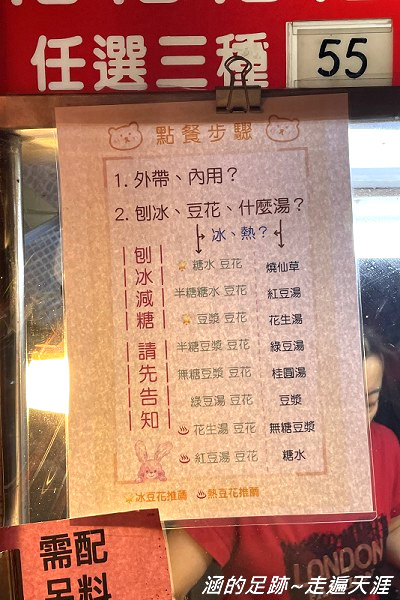 任選三種 55
點餐步驟
1. 外帶、內用？
2. 刨冰、豆花、什麼湯？
冰、熱？
刨冰減糖 請先告知
糖水 豆花 燒仙草
半糖糖水 豆花 紅豆湯
豆漿 豆花 花生湯
半糖豆漿 豆花 綠豆湯
無糖豆漿 豆花 桂圓湯
綠豆湯 豆花 豆漿
♨花生湯 豆花 無糖豆漿
♨紅豆湯 豆花 糖水
冰豆花推薦 ♨熱豆花推薦
需配
LONDON
涵的足跡~走遍天涯